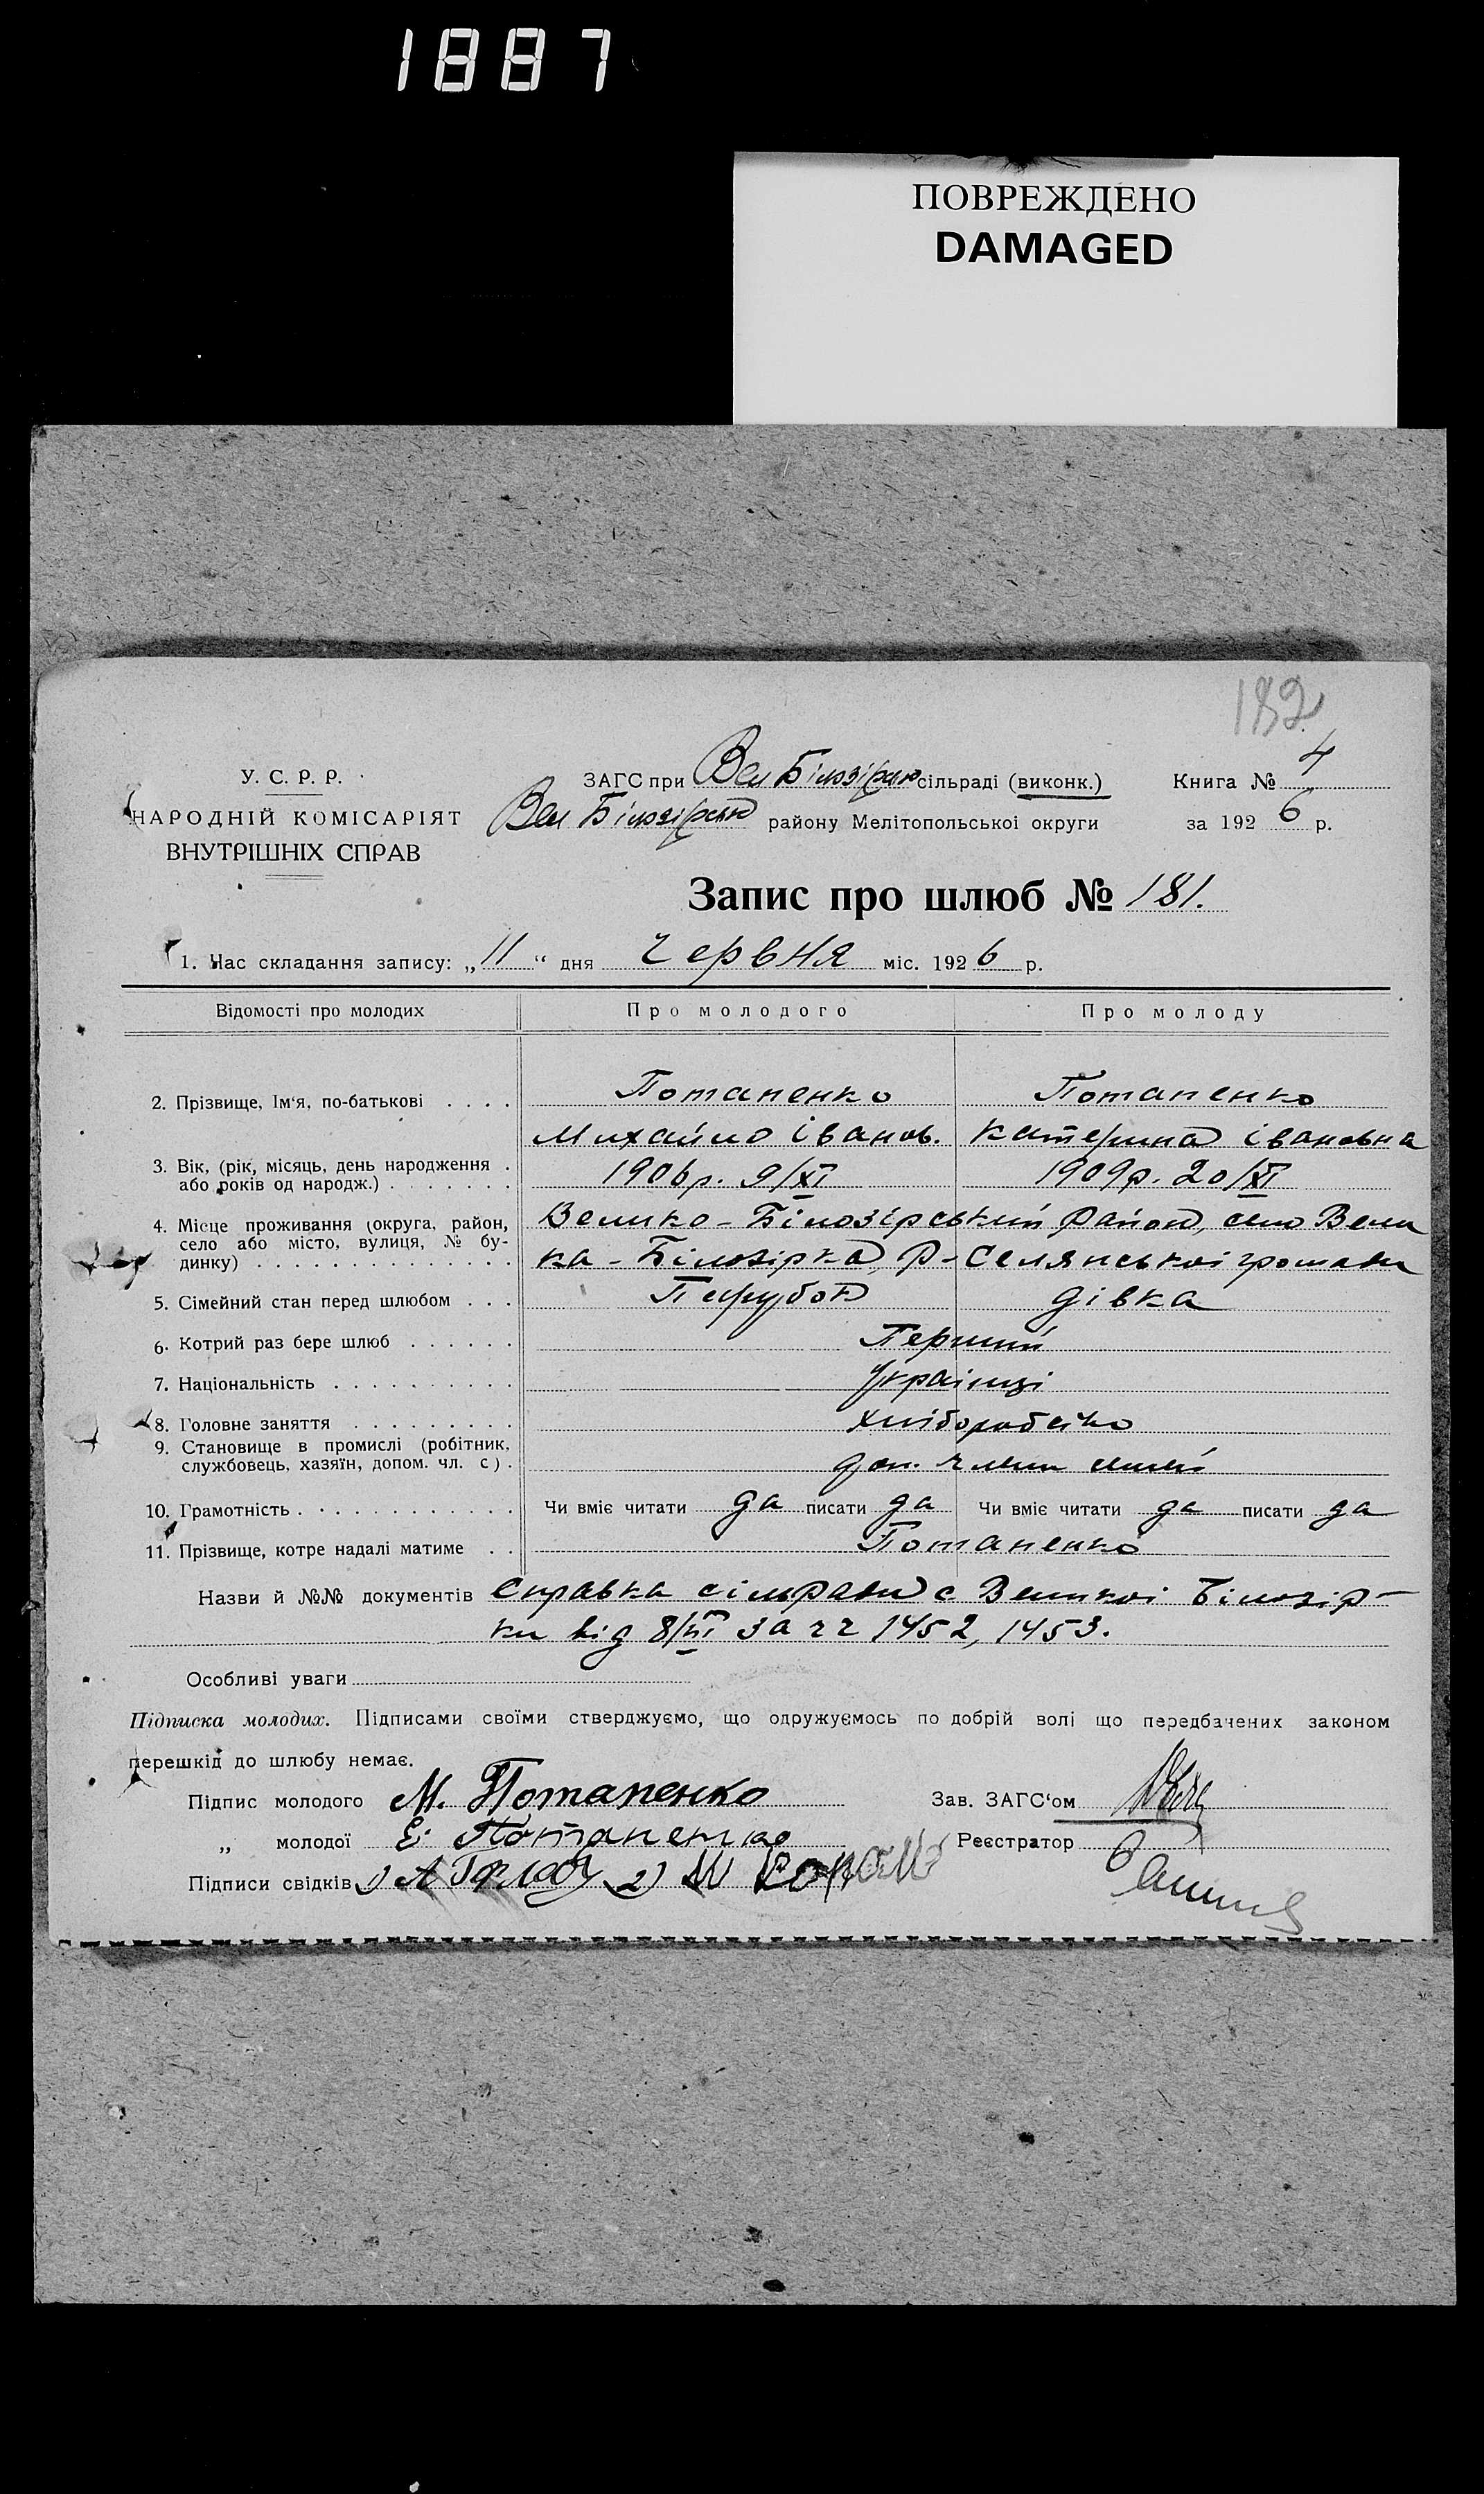 1887
ПОВРЕЖДЕНО
DAMAGED
182
У. С. Р. Р.
НАРОДНІЙ КОМІСАРІЯТ
ВНУТРІШНІХ СПРАВ
ЗАГС при Вел Білозірськ сільраді (виконк.)
Вел Білозірськ району Мелітопольської округи
Книга № 4
за 1926 р.
Запис про шлюб № 181.
1. Час складання запису: „11“ дня червня міс. 1926 р.
Відомості про молодих Про молодого Про молоду
2. Прізвище, Ім'я, по-батькові . . . . Потапенко Потапенко
Михайло Іванов. Катерина Івановна
3. Вік, (рік, місяць, день народження . або років од народж.) . . . . . . . 1906р. 9/XI 1909р. 20/XI
4. Місце проживання (округа, район, село або місто, вулиця, № будинку) . . . . . . . . . . . . . .
Велико-Білозірський район, село Вели
ка-Білозірка, Р-Селянської громади
5. Сімейний стан перед шлюбом . . . Парубок дівка
6. Котрий раз бере шлюб . . . . . . Перший
7. Національність . . . . . . . . . . Українці
8. Головне заняття . . . . . . . . . хліборобство
9. Становище в промислі (робітник, службовець, хазяїн, допом. чл. с) . доп. члени семьї
10. Грамотність . . . . . . . . . . . . Чи вміє читати да писати да Чи вміє читати да писати да
11. Прізвище, котре надалі матиме . . Потапенко
Назви й №№ документів Справка сільради с Великої Білозір-
ки від 8/VI за чч 1452, 1453.
Особливі уваги
Підписка молодих. Підписами своїми стверджуємо, що одружуємось по добрій волі що передбачених законом
перешкід до шлюбу немає.
Підпис молодого М. Потапенко Зав. ЗАГС'ом
„ молодої Е. Потапенко Реєстратор
Підписи свідків 1) А 2) М